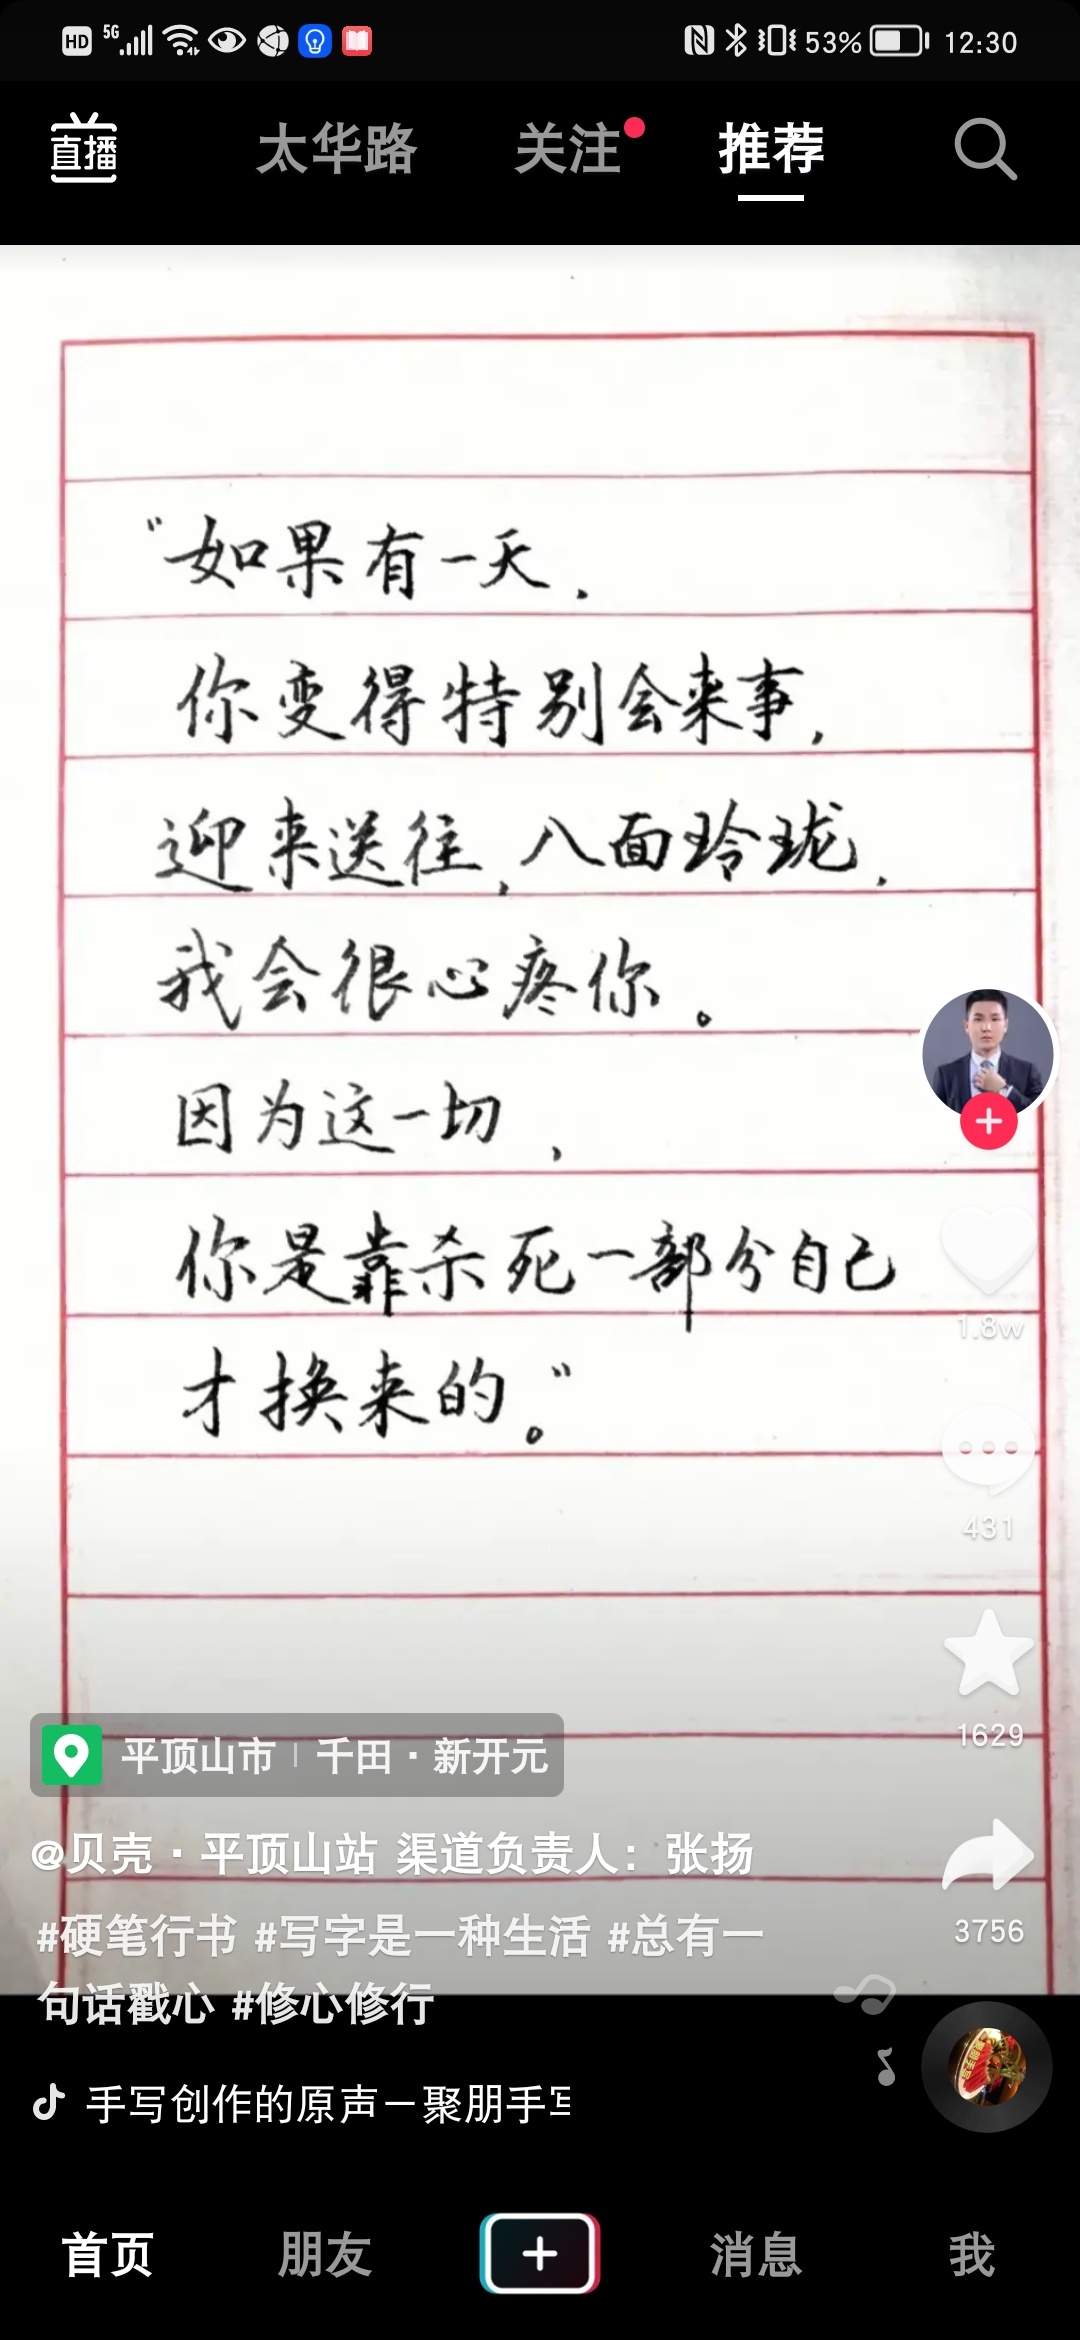 HD 5G 53% 12:30
直播 太华路 关注 推荐
“如果有一天,
你变得特别会来事,
迎来送往,八面玲珑,
我会很心疼你。
因为这一切,
你是靠杀死一部分自己
才换来的。”
1.8w
431
1629
平顶山市 | 千田·新开元
@贝壳·平顶山站 渠道负责人：张扬
3756
#硬笔行书 #写字是一种生活 #总有一
句话戳心 #修心修行
手写创作的原声－聚朋手写
首页 朋友 消息 我